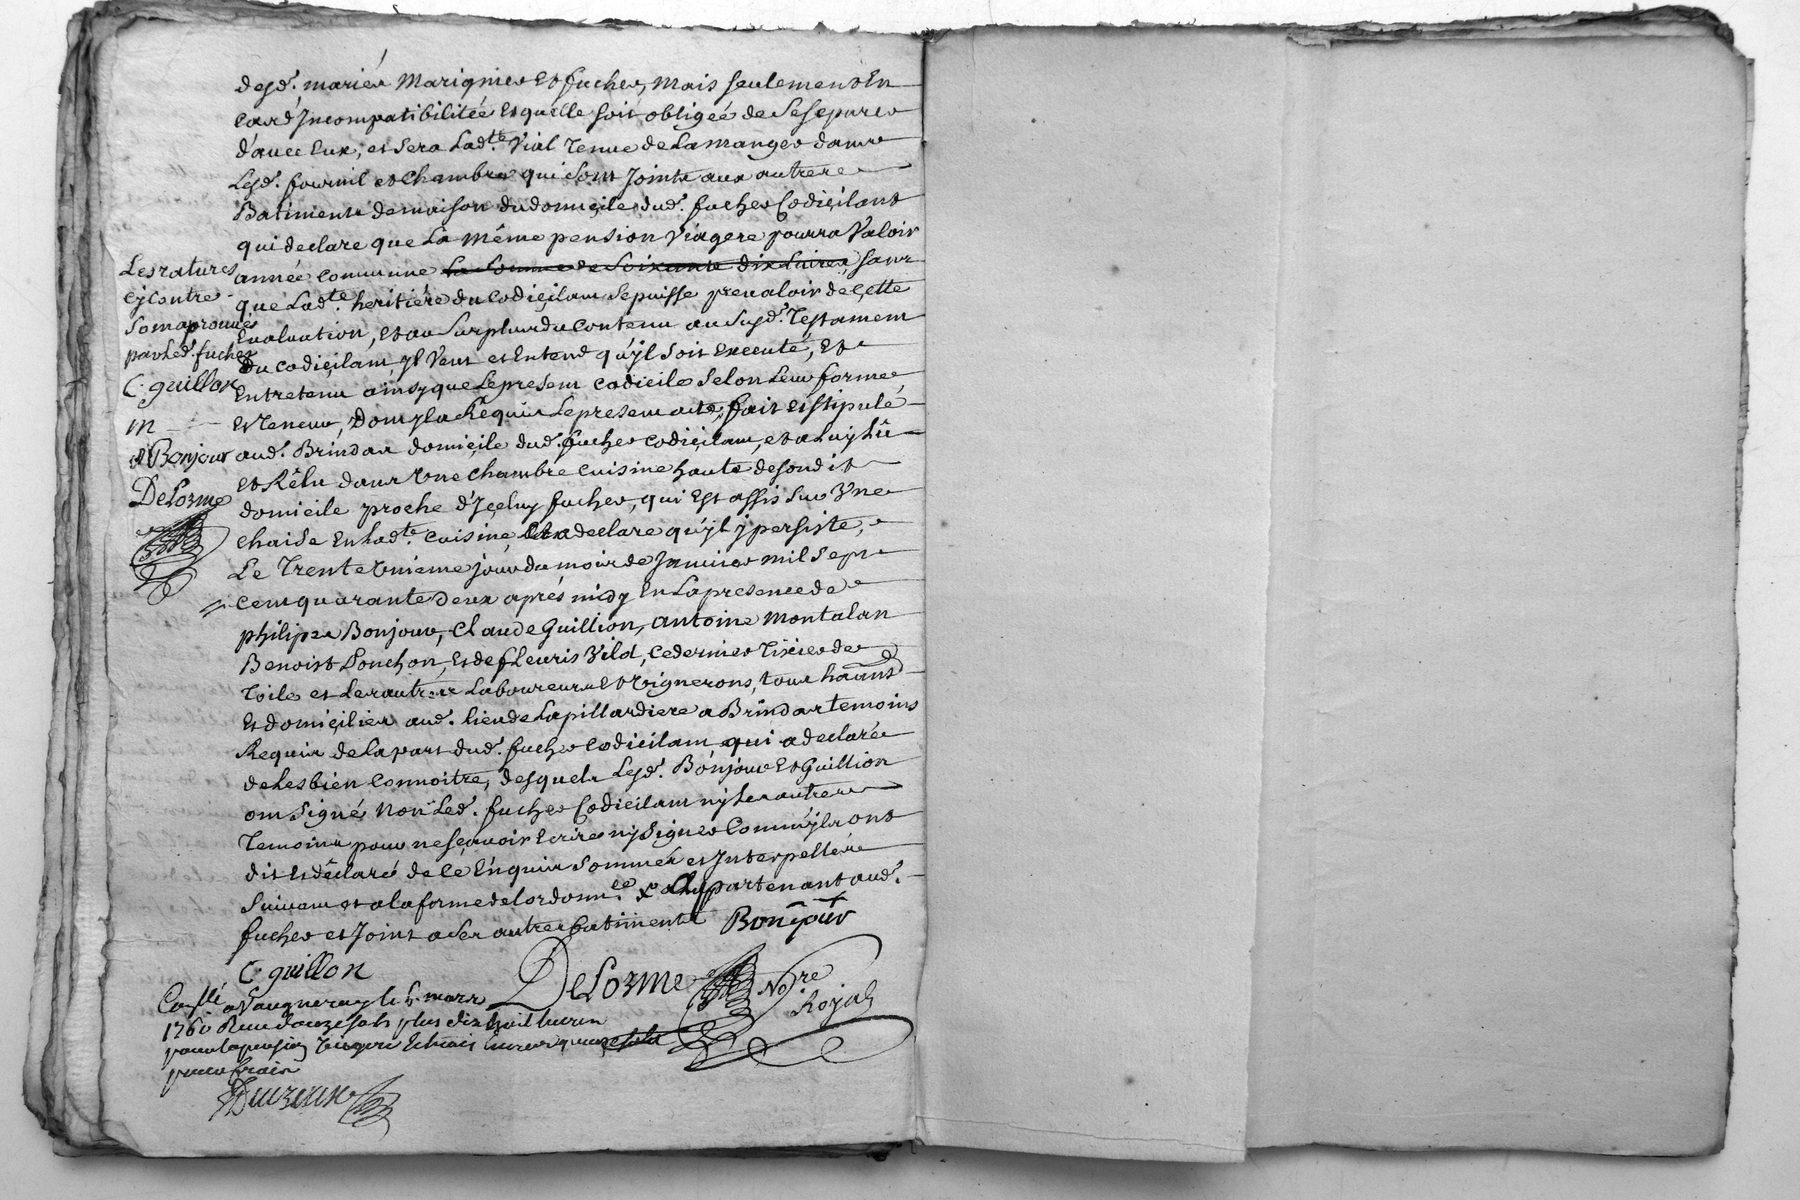 desd. mariés Marignier et fucher, Mais seulement En
Cas d'Incompatibilitée Et quelle soit obligée de Se separer
d'avec Eux, et Sera Lad.te Vial Tenue de La manger dans
Lesd. fournil et Chambre qui sont Joints aux autres
Batiments de maison du domicile dud. fucher Codicilant
qui declare que La même pension Viagere pourra Valoir
année Commune La Somme de Soixante dix Livres sans
que Lad.te heritiére du Codicilant Se puisse prevaloir de Cette
Evaluation, Et au Surplus du Contenu au Susd. Testament
Du Codicilant, Yl Veut et Entend qu'yl Soit Executé, Et
Entretenu ainsy que Le present Codicile Selon Leur forme
Et Teneur, Dont yl a Requis Le present acte, fait et Stipulé
aud. Brindas domicile dud. fucher Codicilant, et a Luy Lû
et Rêlu dans Une Chambre Cuisine haute de son dit
domicile proche d'Jçeluy fucher, qui Est assis Sur Une
Chaise En Lad.te Cuisine, Et a declare qu'yl y persiste,
Le Trente Unieme jour du mois de Janvier mil Sept
Cent quarante Deux aprés midy En La presence de
philipe Bonjour, Claude Guillion, antoine Montalan
Benoist Ponchon, Et de fleuris Vild, Ce dernier Tixier de
Toile et Les autres Laboureurs Et Vignerons, tous hânts
Et domiciliés aud. Lieu de Lapillardiere a Brindas temoins
Requis de La part dud. fucher Codicilant qui a declaré
de Les bien Connoitre, desquels Lesd. Bonjour Et Guillion
ont Signé, Non Led. fucher Codicilant ny Les autres
Temoins pour ne sçavoir Ecrire ny Signer Comm'yls ont
dit Et dêclaré de Ce Enquis Sommés et Interpellés
Suivant et a la forme de Lordonn.ce x Appartenant aud.
fucher et Joint a Ses autres batiments Bonjour
C. guillon DeLorme No.re
Royal
Les ratures
Cy Contre
Sont aprouvées
par Led. fucher
C. guillon
m
Bonjour
DeLorme
Con.llé a Vaugneray le 5 mars
1760 Reçu douze sols plus dix huit livres
pour la pension Viagere
pour frais
Duzeux